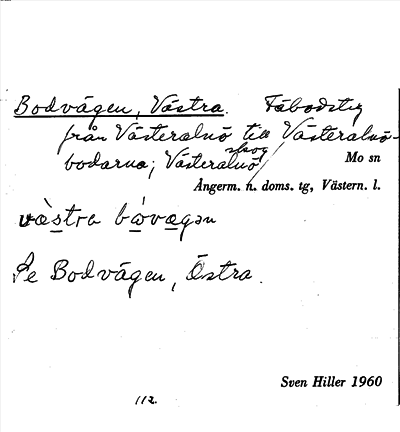 Bodvägen, Västra. Fäbodstig
från Västeralnö till Västeralnö-
bodarna; Västeralnö skog/
Mo sn
Ångerm. n. doms. tg, Västern. l.
væ̀stra bóvægən
Se Bodvägen, Östra.
Sven Hiller 1960
112.